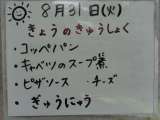 8月31日(火)
きょうのきゅうしょく
・コッペパン
・キャベツのスープ煮
・ピザソース ・チーズ
・ぎゅうにゅう